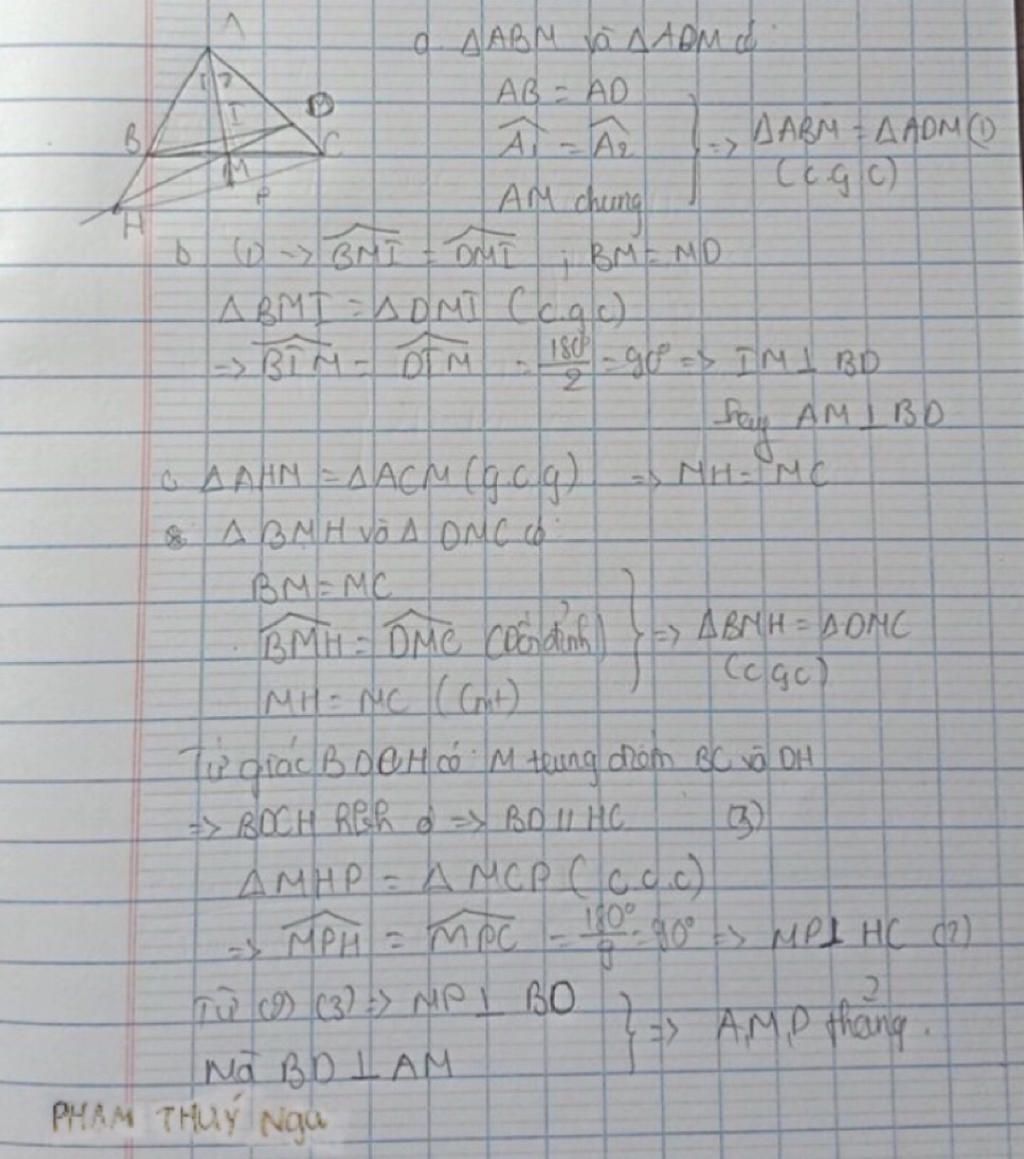 A
1 2
I
D
B
C
M
P
H
a. ΔABM và ΔADM có
AB = AD
Â1 = Â2
AM chung
=> ΔABM = ΔADM (1)
(c.g.c)
b (1) -> BMI = DMI ; BM = MD
ΔBMI = ΔDMI (c.g.c)
=> BIM = DIM = 180°/2 = 90° => IM ⊥ BD
hay AM ⊥ BD
c. ΔAHM = ΔACM (g.c.g) => MH = MC
ΔBMH và ΔDMC có
BM = MC
BMH = DMC (Đối đỉnh)
MH = MC (Cmt)
=> ΔBMH = ΔDMC
(c gc)
Tứ giác BDCH có M trung điểm BC và DH
=> BDCH => BD // HC (3)
ΔMHP = ΔMCP (c.c.c)
=> MPH = MPC = 180°/2 = 90° => MP ⊥ HC (2)
Từ (2) (3) => MP ⊥ BD
Mà BD ⊥ AM
=> A,M,P thẳng.
PHẠM THUÝ Nga